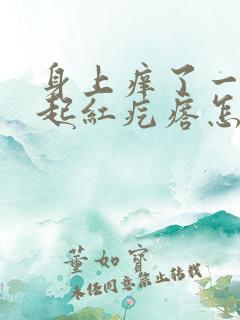 身上痒了一
起红疙瘩怎
董如宝
未经同意禁止转载